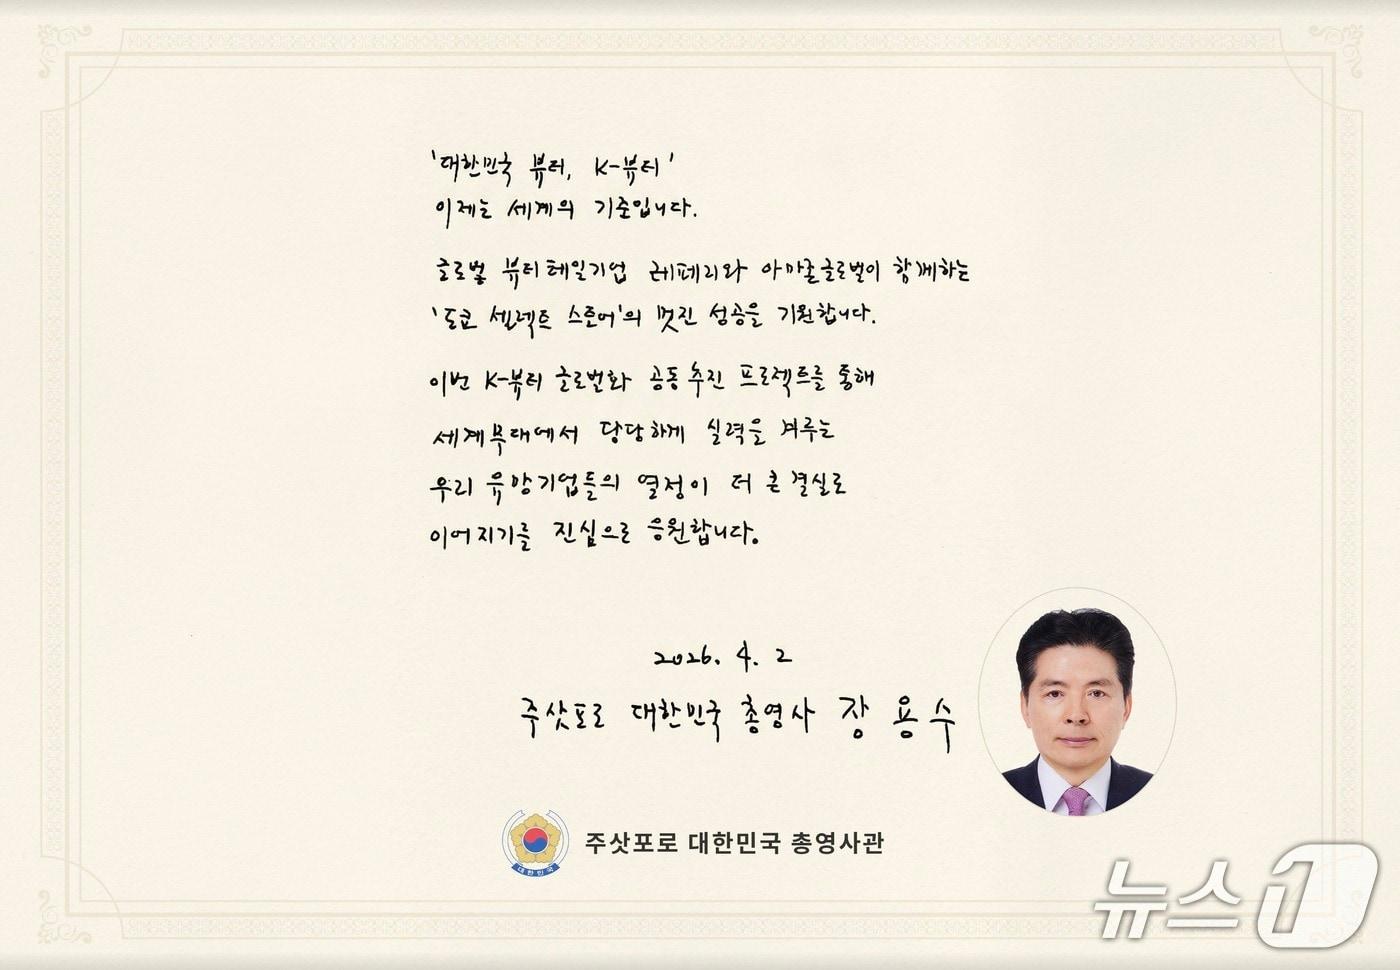 '대한민국 뷰티, K-뷰티'
이제는 세계의 기준입니다.
글로벌 뷰티테일기업 레페리와 아마존글로벌이 함께하는
'도쿄 셀렉트 스토어'의 멋진 성공을 기원합니다.
이번 K-뷰티 글로벌화 공동 추진 프로젝트를 통해
세계무대에서 당당하게 실력을 겨루는
우리 유망기업들의 열정이 더 큰 결실로
이어지기를 진심으로 응원합니다.
2026. 4. 2
주삿포로 대한민국 총영사 장 용 수
대한민국
주삿포로 대한민국 총영사관
뉴스1